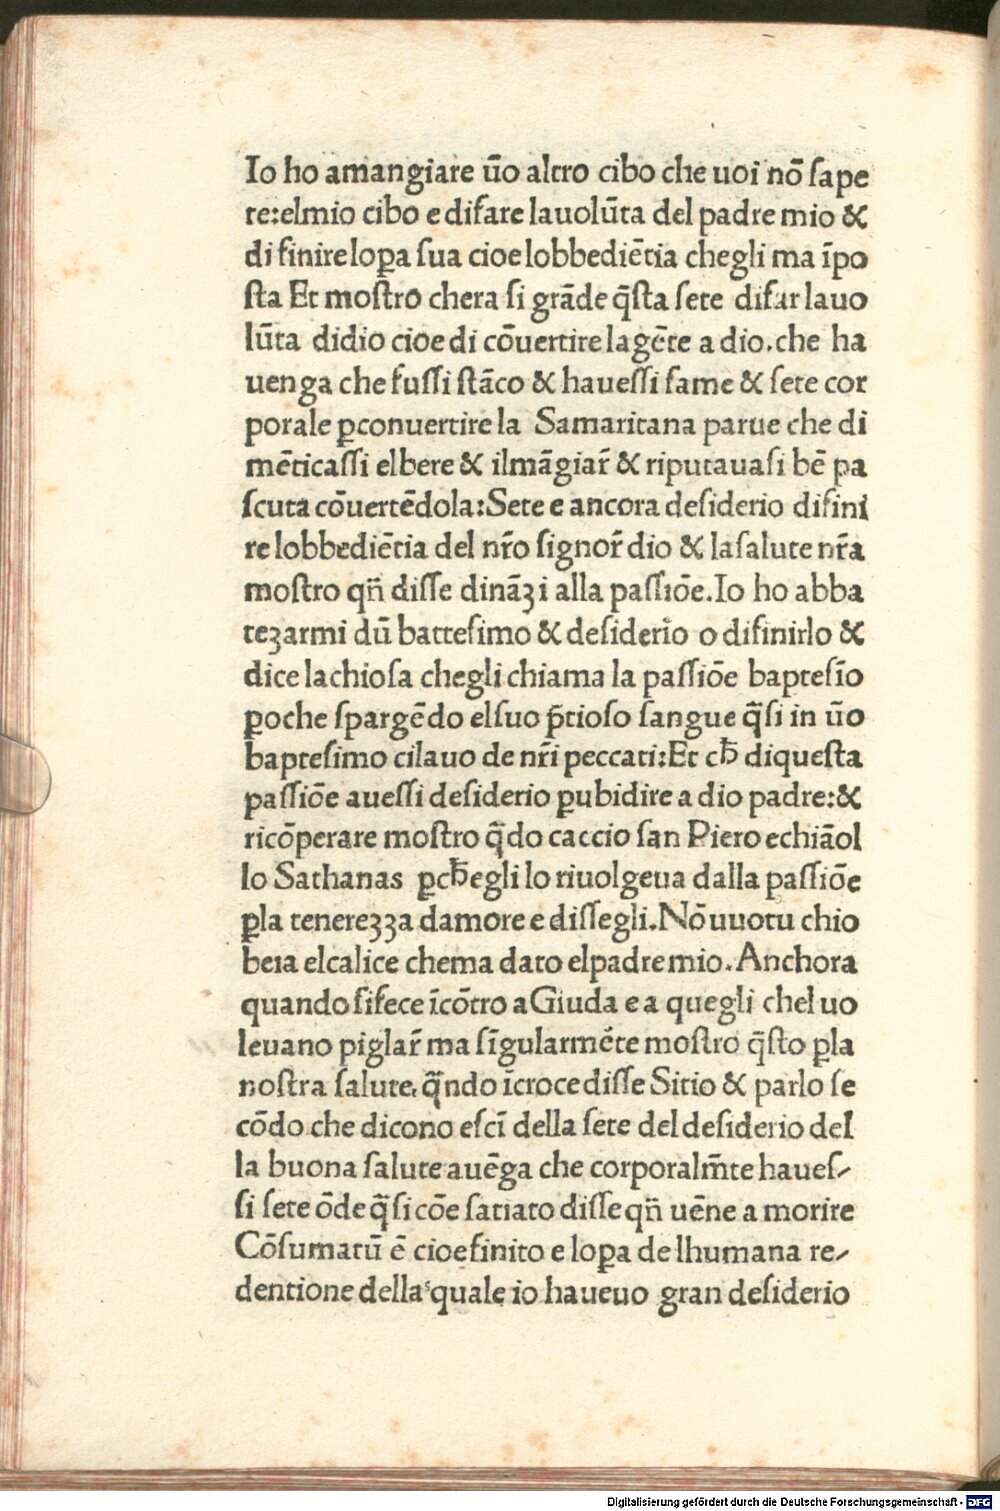 Io ho amangiare ūo altro cibo che uoi nō ſape
te:elmio cibo e difare lauolūta del padre mio &
di finire loꝑa ſua cioe lobbediētia chegli ma īpo
ſta Et moſtro chera ſi grāde q̄ſta ſete difar lauo
lūta didio cioe di cōuertire la gēte a dio.che ha
uenga che fuſſi ſtāco & haueſſi fame & ſete cor
porale ꝑconuertire la Samaritana parue che di
mēticaſſi elbere & ilmāgiar̄ & riputauaſi bē pa
ſcuta cōuertēdola:Sete e ancora deſiderio difini
re lobbediētia del nr̄o ſignor̄ dio & laſalute nr̄a
moſtro qn̄ diſſe dināʒi alla paſſiōe.Io ho abba
teʒarmi dū batteſimo & deſiderio o difinirlo &
dice lachioſa chegli chiama la paſſiōe bapteſīo
ꝑoche ſpargēdo elſuo p̄tioſo ſangue q̄ſi in ūo
bapteſimo cilauo de nr̄i peccati:Et cħ diqueſta
paſſiōe aueſſi deſiderio ꝑubidire a dio padre:&
ricōperare moſtro q̄do caccio ſan Piero echiāol
lo Sathanas ꝑcħegli lo riuolgeua dalla paſſiōe
ꝑla tenereʒʒa damore e diſſegli.Nō uuotu chio
beia elcalice chema dato elpadre mio.Anchora
quando ſifece īcōtro a Giuda e a quegli chel uo
leuano piglar̄ ma ſīgularmēte moſtro q̄ſto ꝑla
noſtra ſalute, q̄ndo īcroce diſſe Sitio & parlo ſe
cōdo che dicono eſcī della ſete del deſiderio del
la buona ſalute auēga che corporalm̄te haueſ-
ſi ſete ōde q̄ſi cōe ſatiato diſſe qn̄ uēne a morire
Cōſumatū ē cioe finito e loꝑa de lhumana re-
dentione della quale io haueuo gran deſiderio
Digitalisierung gefördert durch die Deutsche Forschungsgemeinschaft - DFG